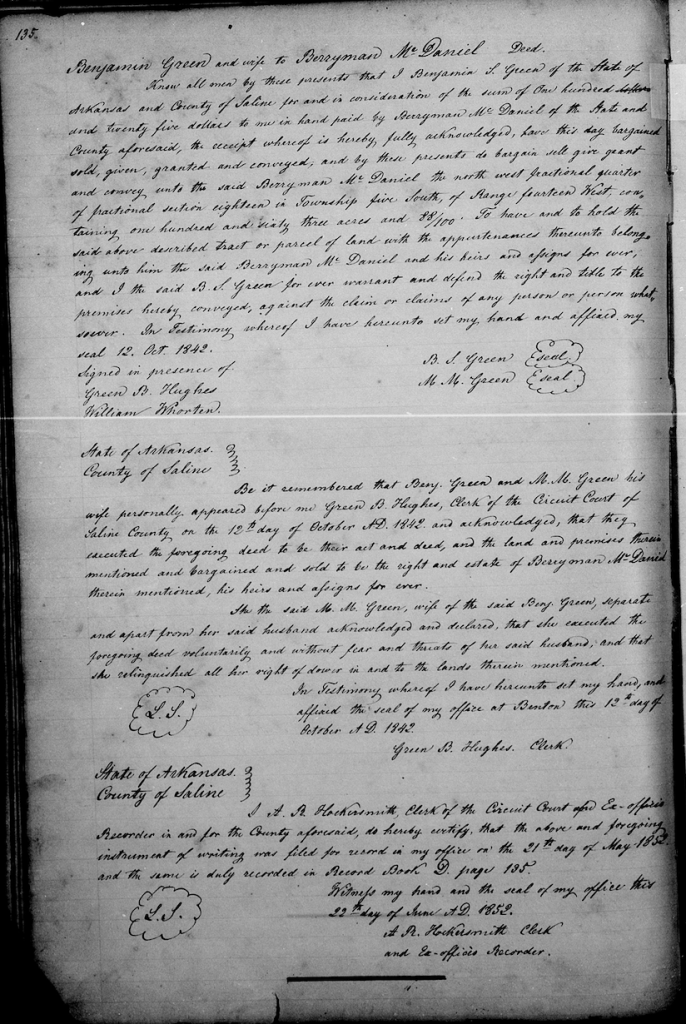 135.
Benjamin Green and wife to Berryman Mc Daniel Deed.
Know all men by these presents that I Benjamin S. Green of the State of
Arkansas and County of Saline for and in consideration of the sum of One hundred dollars
and twenty five dollars to me in hand paid by Berryman Mc Daniel of the State and
County aforesaid, the receipt whereof is hereby fully acknowledged, have this day bargained
sold, given, granted and conveyed, and by these presents do bargain sell give grant
and convey unto the said Berryman Mc Daniel the north west fractional quarter
of fractional section eighteen in Township five South, of Range fourteen West, con,
taining one hundred and sixty three acres and 98/100. To have and to hold the
said above described tract or parcel of land with the appurtenances thereunto belong,
ing unto him the said Berryman Mc Daniel and his heirs and assigns for ever,
and I the said B. S. Green for ever warrant and defend the right and title to the
premises hereby conveyed, against the claim or claims of any person or person what,
soever. In Testimony whereof I have hereunto set my hand and affixed my
seal 12. Oct. 1842.
Signed in presence of
B. S. Green seal.
Green B. Hughes
M. M. Green seal
William Whorten.
State of Arkansas.
County of Saline
Be it remembered that Benj. Green and M. M. Green his
wife personally appeared before me Green B. Hughes, Clerk of the Circuit Court of
Saline County on the 12th day of October A.D. 1842. and acknowledged, that they
executed the foregoing deed to be their act and deed, and the land and premises therein
mentioned and bargained and sold to be the right and estate of Berryman Mc Daniel
therein mentioned, his heirs and assigns for ever.
She the said M. M. Green, wife of the said Benj. Green, separate
and apart from her said husband acknowledged and declared, that she executed the
foregoing deed voluntarily and without fear and threats of her said husband, and that
she relinquished all her right of dower in and to the lands therein mentioned.
In Testimony whereof I have hereunto set my hand, and
affixed the seal of my office at Benton this 12th day of
October A.D. 1842.
L. S.
Green B. Hughes. Clerk
State of Arkansas.
County of Saline
I A. R. Hockersmith, Clerk of the Circuit Court and Ex-officio
Recorder in and for the County aforesaid, do hereby certify, that the above and foregoing
instrument of writing was filed for record in my office on the 21th day of May 1852.
and the same is duly recorded in Record Book D. page 135.
Witness my hand and the seal of my office this
22th day of June A.D. 1852.
L. S.
A R. Hockersmith Clerk
and Ex-officio Recorder.